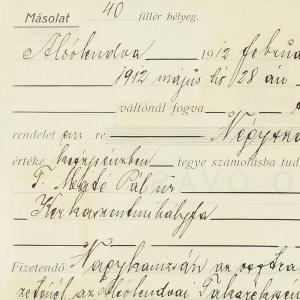 Másolat 40 fillér bélyeg.
Alsólendva 1912 februá
1912 május hó 28 án
váltónál fogva
rendelet en re Négysz
értéke készpénzben tegye számolásba tud
T. Máté Pál úr
Kerkaszentmihályfa
Fizetendő Nagykanizsán az osztrá
zeténél, az Alsólendvai Takarékpén